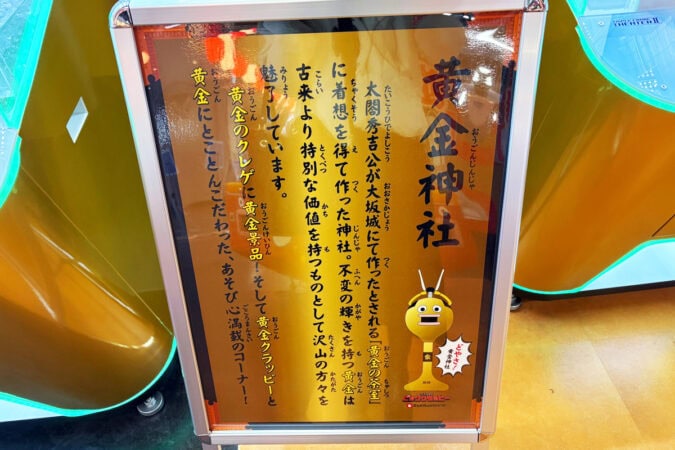 黄金神社
おうごんじんじゃ
太閤秀吉公が大坂城にて作ったとされる「黄金の茶室」
に着想を得て作った神社。不変の輝きを持つ黄金は
古来より特別な価値を持つものとして沢山の方々を
魅了しています。
黄金のクレゲに黄金景品！そして黄金クラッピーと
黄金にとことんこだわった、あそび心満載のコーナー！
どやさ！
黄金神社